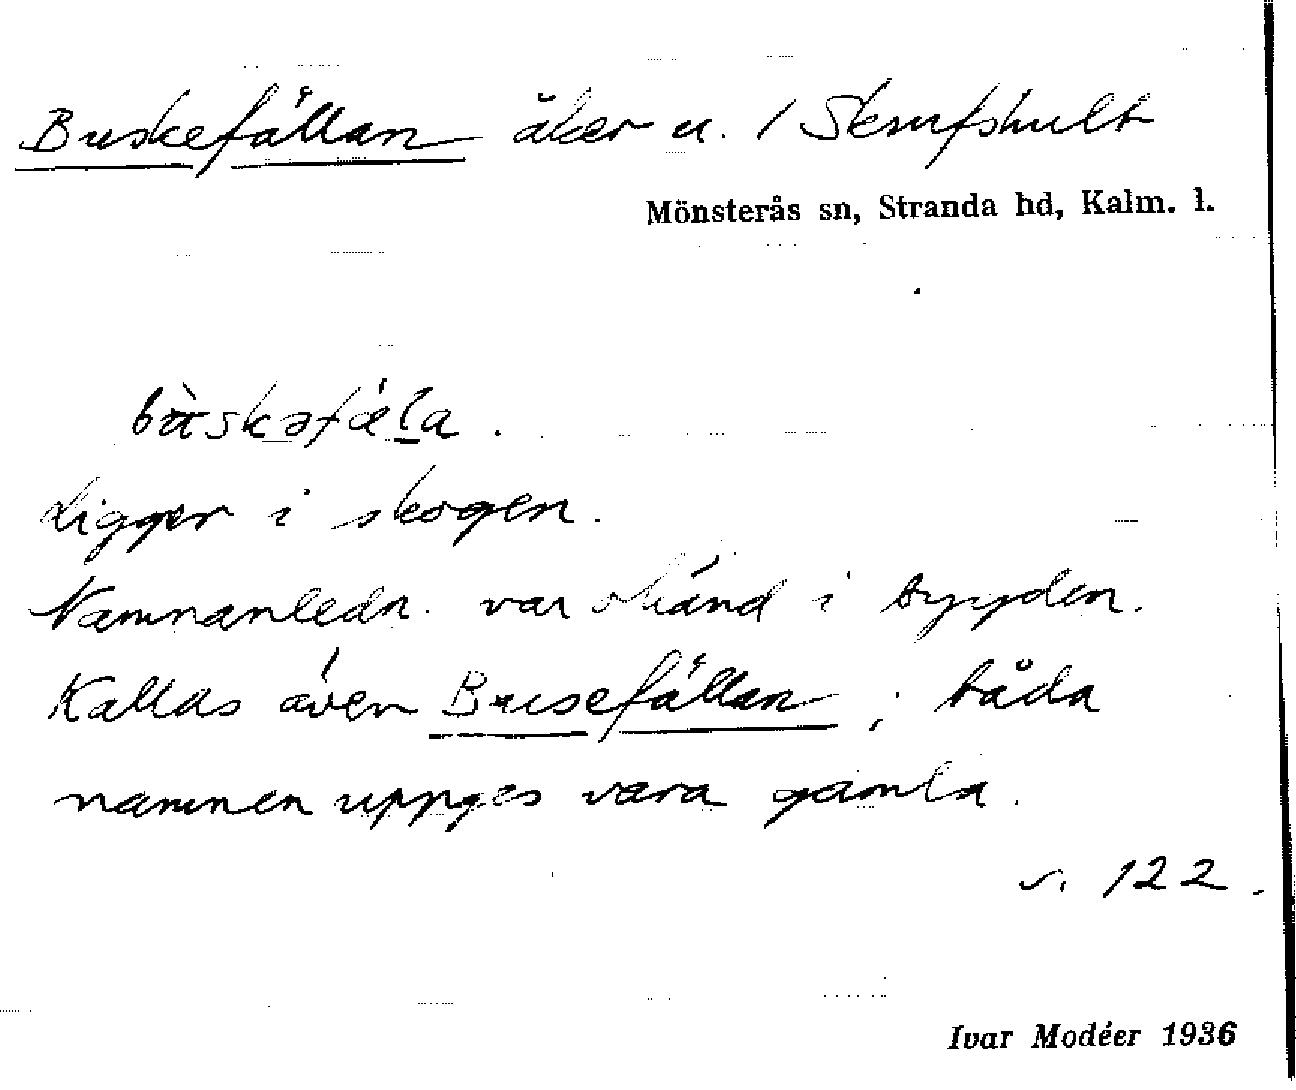 Buskefällan åker u. 1 Skrufshult
Mönsterås sn, Stranda hd, Kalm. l.
Ligger i skogen.
Namnanledn. var okänd i bygden.
Kallas även Busefällan; båda
namnen uppges vara gamla.
s. 122.
Ivar Modéer 1936